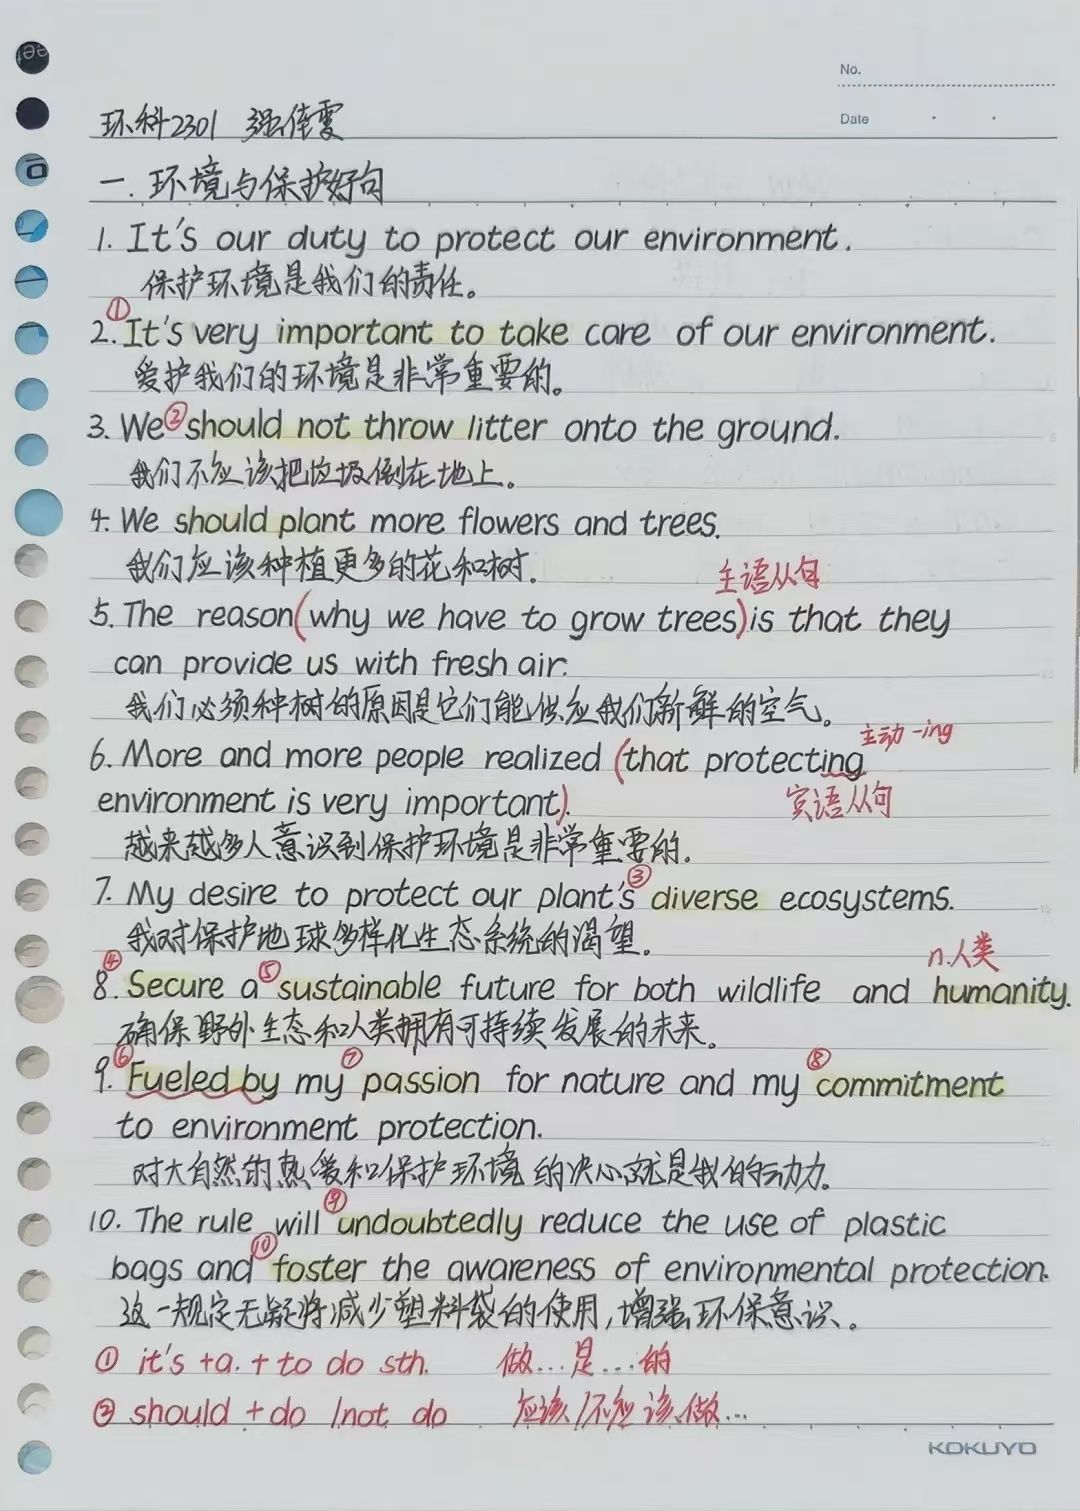 No.
Date
环科2301 强倩雯
一. 环境与保护好句
1. It's our duty to protect our environment.
保护环境是我们的责任。
①
2. It's very important to take care of our environment.
爱护我们的环境是非常重要的。
3. We ②should not throw litter onto the ground.
我们不应该把垃圾倒在地上。
4. We should plant more flowers and trees.
我们应该种植更多的花和树.
主语从句
5. The reason(why we have to grow trees)is that they
can provide us with fresh air.
我们必须种树的原因是它们能供应我们新鲜的空气。
主动 -ing
6. More and more people realized (that protecting
environment is very important).
宾语从句
越来越多人意识到保护环境是非常重要的.
7. My desire to protect our plant's ③diverse ecosystems.
我对保护地球多样化生态系统的渴望。
n.人类
8. ④Secure a ⑤sustainable future for both wildlife and humanity.
确保野外生态和人类拥有可持续发展的未来。
9. ⑥Fueled by my ⑦passion for nature and my ⑧commitment
to environment protection.
对大自然的热爱和保护环境的决心就是我的动力。
10. The rule will ⑨undoubtedly reduce the use of plastic
bags and ⑩foster the awareness of environmental protection.
这一规定无疑将减少塑料袋的使用,增强环保意识。
① it's +a. + to do sth. 做...是...的
② should + do /not do 应该/不应该做...
KOKUYO